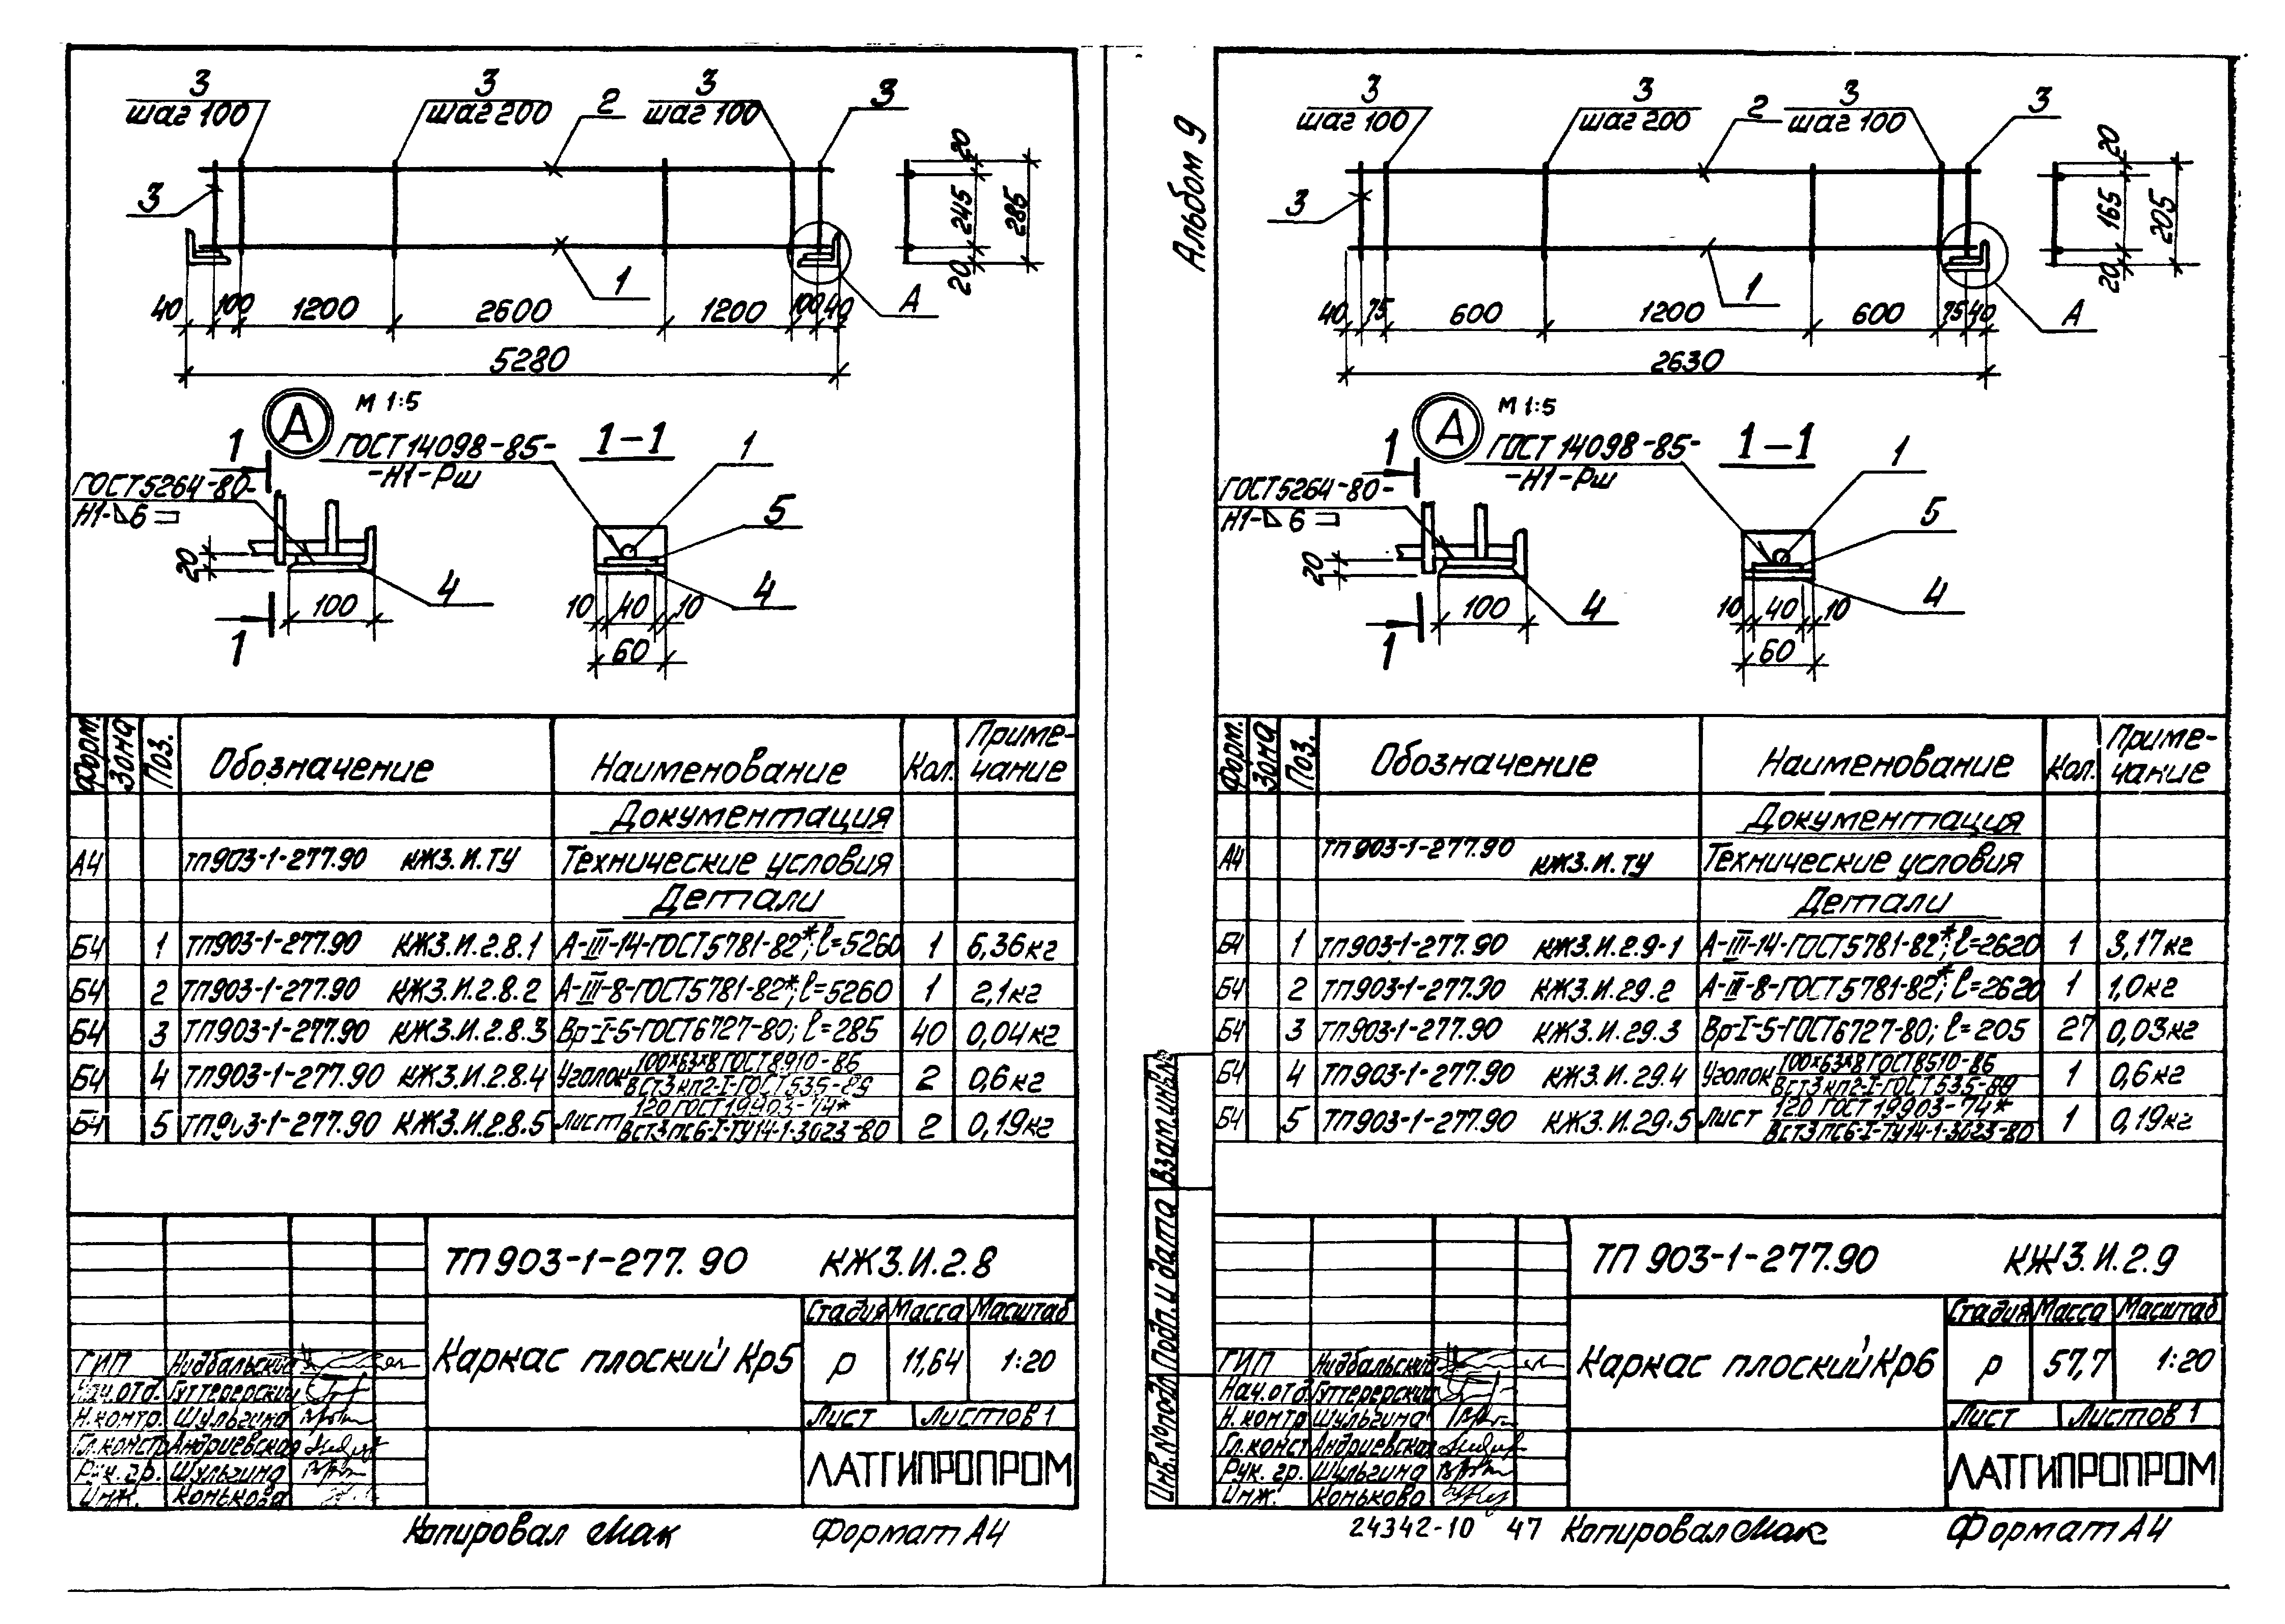 3 3 3 3
шаг 100 шаг 200 2 шаг 100
3
20
245
285
20
1
40 100 1200 2600 1200 100 40 А
5280
А М 1:5
1 ГОСТ14098-85- 1-1 1
-Н1-Рш
ГОСТ5264-80-
Н1-6
5
20
4 4
100 10 40 10
1 60
Форм. Зона Поз. Обозначение Наименование Кол. Приме-
чание
Документация
А4 ТП903-1-277.90 КЖ3.И.ТУ Технические условия
Детали
Б4 1 ТП903-1-277.90 КЖ3.И.2.8.1 А-III-14-ГОСТ5781-82*; l=5260 1 6,36кг
Б4 2 ТП903-1-277.90 КЖ3.И.2.8.2 А-III-8-ГОСТ5781-82*; l=5260 1 2,1кг
Б4 3 ТП903-1-277.90 КЖ3.И.2.8.3 Вр-I-5-ГОСТ6727-80; l=285 40 0,04кг
Б4 4 ТП903-1-277.90 КЖ3.И.2.8.4 Уголок 100х63х8 ГОСТ8910-86 2 0,6кг
ВСТ3кп2-I-ГОСТ535-89
Б4 5 ТП903-1-277.90 КЖ3.И.2.8.5 Лист 120 ГОСТ19903-74* 2 0,19кг
ВСТ3пс6-I-ТУ14-1-3023-80
ТП903-1-277.90 КЖ3.И.2.8
Каркас плоский Кр5
Стадия Масса Масштаб
Р 11,64 1:20
Лист Листов 1
ЛАТГИПРОПРОМ
ГИП Нидбальский
Нач.отд. Гуттерерский
Н.контр. Шульгина
Гл.констр Андриевская
Рук. гр. Шульгина
Инж. Конькова
Копировал Мак Формат А4
Альбом 9
3 3 3 3
шаг 100 шаг 200 2 шаг 100
3
20
165
205
20
1
40 75 600 1200 600 75 40 А
2630
А М 1:5
1 ГОСТ 14098-85- 1-1 1
-Н1-Рш
ГОСТ5264-80-
Н1-6
5
20
4 4
100 10 40 10
1 60
Форм. Зона Поз. Обозначение Наименование Кол. Приме-
чание
Документация
А4 ТП903-1-277.90 КЖ3.И.ТУ Технические условия
Детали
Б4 1 ТП903-1-277.90 КЖ3.И.2.9-1 А-III-14-ГОСТ5781-82*; l=2620 1 3,17кг
Б4 2 ТП903-1-277.90 КЖ3.И.29.2 А-III-8-ГОСТ5781-82*; l=2620 1 1,0кг
Б4 3 ТП903-1-277.90 КЖ3.И.29.3 Вр-I-5-ГОСТ6727-80; l=205 27 0,03кг
Б4 4 ТП903-1-277.90 КЖ3.И.29.4 Уголок 100х63х8 ГОСТ8510-86 1 0,6кг
ВСТ3кп2-I-ГОСТ535-89
Б4 5 ТП903-1-277.90 КЖ3.И.29.5 Лист 120 ГОСТ19903-74* 1 0,19кг
ВСТ3пс6-I-ТУ14-1-3023-80
Взам.инв.№
Подп.и дата
Инв.№подл
ТП 903-1-277.90 КЖ3.И.2.9
Каркас плоский Кр6
Стадия Масса Масштаб
Р 57,7 1:20
Лист Листов 1
ЛАТГИПРОПРОМ
ГИП Нидбальский
Нач.отд. Гуттерерский
Н.контр Шульгина
Гл.конст Андриевская
Рук. гр. Шульгина
Инж. Конькова
24342-10 47 Копировал Мак Формат А4